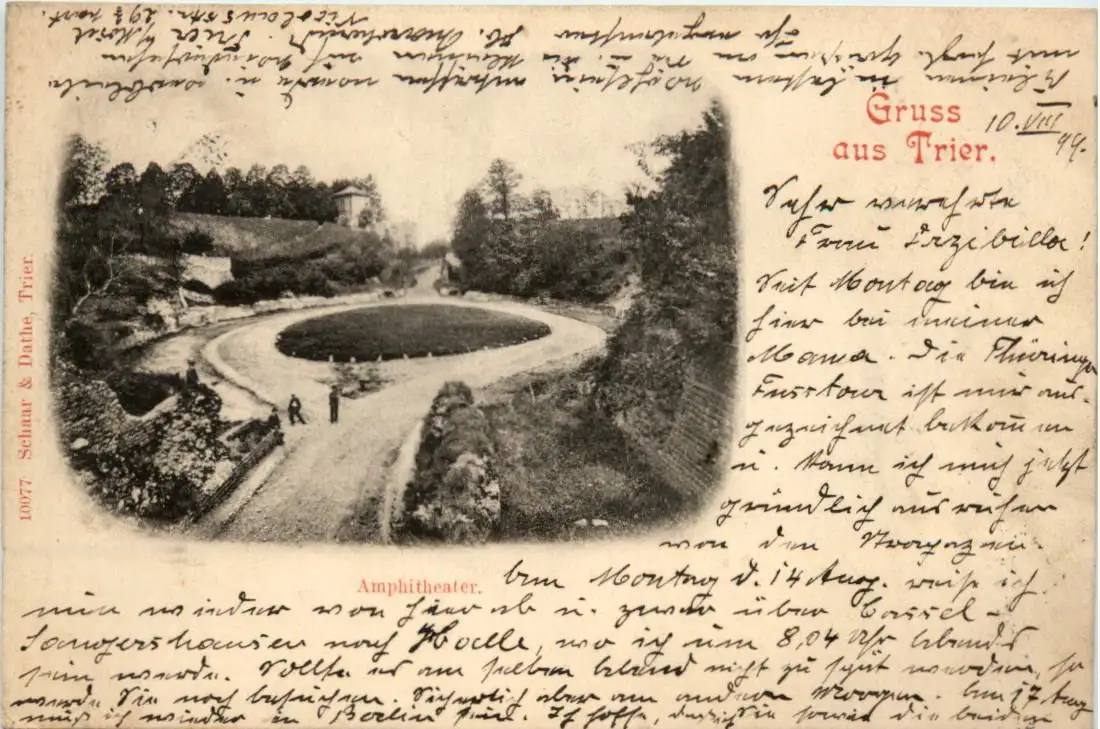 Gruss
aus Trier.
10. VIII
99.
Sehr verehrte
Frau Przibilla!
Seit Montag bin ich
hier bei meiner
Mama. Die Thüringer
Fusstour ist mir aus-
gezeichnet bekommen
u. kann ich mich jetzt
gründlich ausruhen
von den Strapazen.
Am Montag d. 14 Aug. reise ich
nun wieder von hier ab u. zwar über Cassel-
Sangershausen nach Halle, wo ich um 8,04 Uhr Abends
sein werde. Sollte es am selben Abend nicht zu spät werden, so
werde Sie noch besuchen. Sicherlich aber am andern Morgen. Am 17 Aug
muß ich wieder in Berlin sein. Ich hoffe, dass Sie sowie die beiden
Kleinen im besten
mit
Ihr ergebenster
Nicolausstr. 29
Amphitheater.
10077 Schaar & Dathe, Trier.